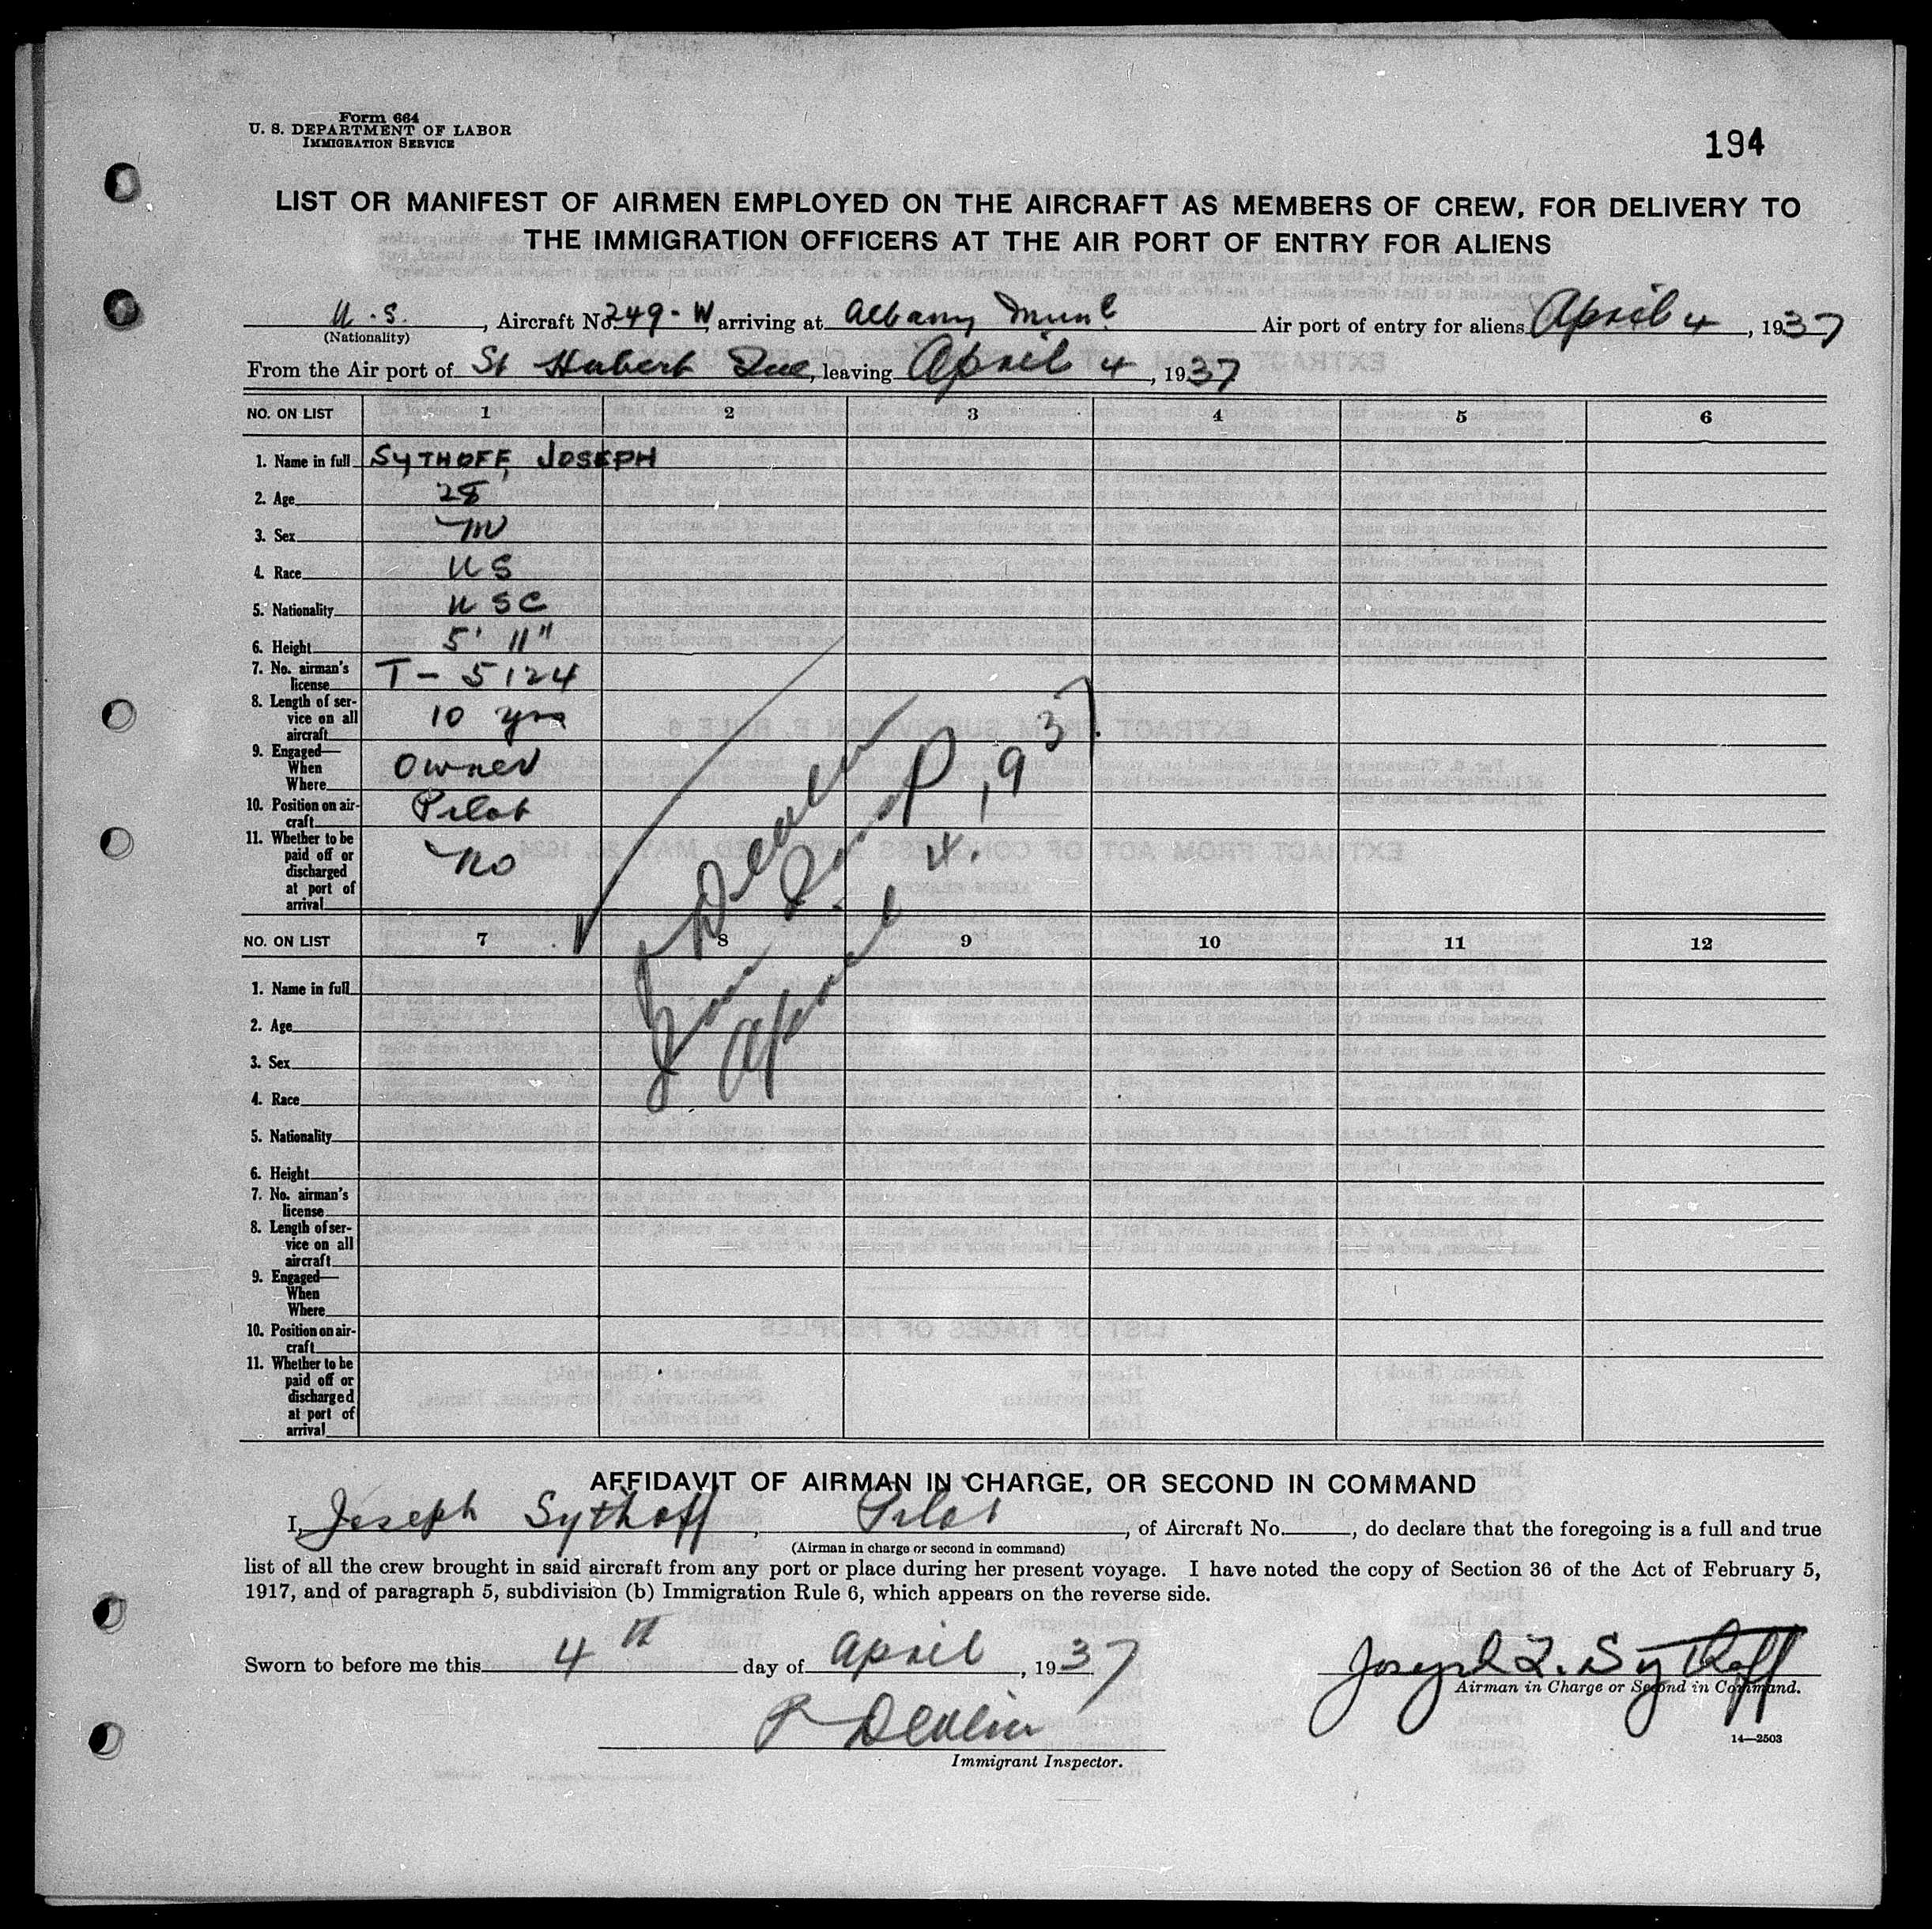 Form 664
U. S. DEPARTMENT OF LABOR
IMMIGRATION SERVICE
194
LIST OR MANIFEST OF AIRMEN EMPLOYED ON THE AIRCRAFT AS MEMBERS OF CREW, FOR DELIVERY TO
THE IMMIGRATION OFFICERS AT THE AIR PORT OF ENTRY FOR ALIENS
U.S., Aircraft No. 249-W arriving at Albany Munl Air port of entry for aliens April 4, 1937
(Nationality)
From the Air port of St Hubert Que, leaving April 4, 1937
NO. ON LIST 1 2 3 4 5 6
1. Name in full SYTHOFF, JOSEPH
2. Age 28
3. Sex M
4. Race US
5. Nationality USC
6. Height 5' 11"
7. No. airman's license T-5124
8. Length of service on all aircraft 10 yrs
9. Engaged— When Where Owner
10. Position on aircraft Pilot
11. Whether to be paid off or discharged at port of arrival No
P Devlin
April 4, 1937.
NO. ON LIST 7 8 9 10 11 12
1. Name in full
2. Age
3. Sex
4. Race
5. Nationality
6. Height
7. No. airman's license
8. Length of service on all aircraft
9. Engaged— When Where
10. Position on aircraft
11. Whether to be paid off or discharged at port of arrival
AFFIDAVIT OF AIRMAN IN CHARGE, OR SECOND IN COMMAND
I, Joseph Sythoff, Pilot, of Aircraft No. , do declare that the foregoing is a full and true
(Airman in charge or second in command)
list of all the crew brought in said aircraft from any port or place during her present voyage. I have noted the copy of Section 36 of the Act of February 5,
1917, and of paragraph 5, subdivision (b) Immigration Rule 6, which appears on the reverse side.
Sworn to before me this 4th day of April, 1937
Joseph L. Sythoff
Airman in Charge or Second in Command.
P Devlin
Immigrant Inspector.
14—2503